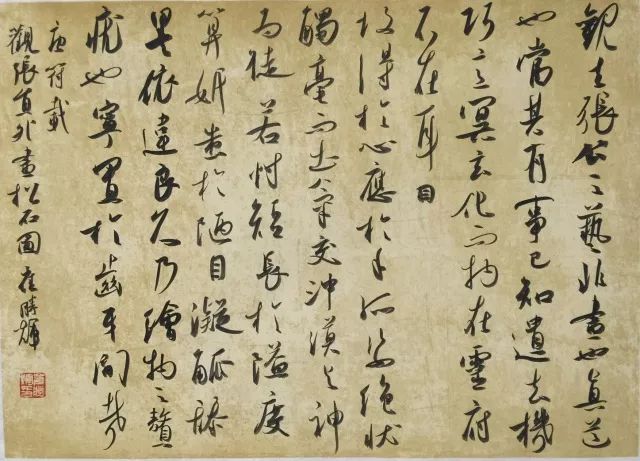 觀夫張公之藝非畫也真道
也當其有事已知遺去機
巧意冥玄化而物在靈府
不在耳目
故得於心應於手孤姿絕狀
觸毫而出氣交沖漠與神
為徒若忖短長於隘度
算妍蚩於陋目凝觚舔
墨依違良久乃繪物之贅
疣也寧置於齒牙間哉
唐符載
觀張員外畫松石圖 崔勝輝